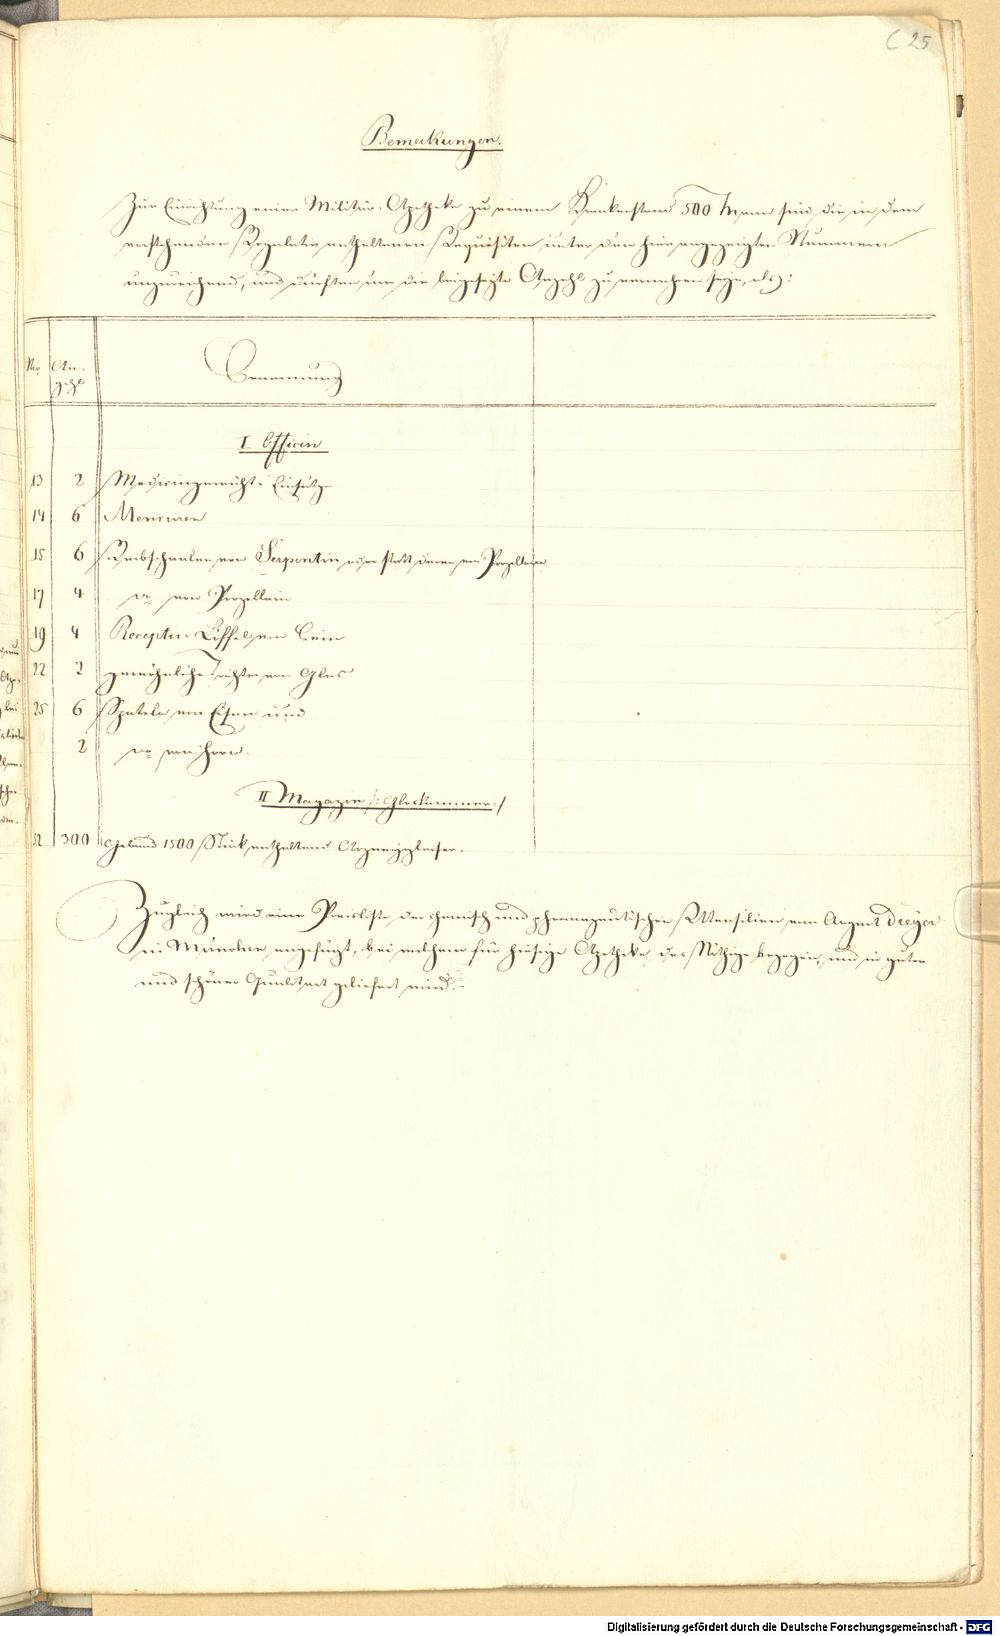 C 25
Bemerkungen.
Zur Einrichtung einer Militär-Apotheke zu einem Krankenstand 500 Mann sind die in dem
vorstehenden Regulativ enthaltenen Requisiten unter den hier angezeigten Nummern
unzureichend, und dürften um die beigesetzte Anzahl zu vermehren seyn, als:
Nro An-
zahl
Benennung
I Officin
13 2 Medicingewicht: Einsätze
14 6 Mensuren
15 6 Reibschaalen von Serpentin oder statt deren von Porzellain
17 4 do von Porzellain
19 4 Receptur-Löffel von Bein
22 2 gewöhnliche Trichter von Glas
25 6 Spateln von Eisen und
2 do von Horn.
II Magazin /: Glaskammer :/
52 300 Gebund 1500 Stück enthaltend Arzneygläser.
Zugleich wird eine Preisliste der chemisch und pharmazeutischen Uttensilien von August Dreyer
in München angefügt, bei welchem für hiesige Apotheke das Nöthige bezogen, und in guter
und schöner Qualitaet geliefert wird.
Digitalisierung gefördert durch die Deutsche Forschungsgemeinschaft - DFG